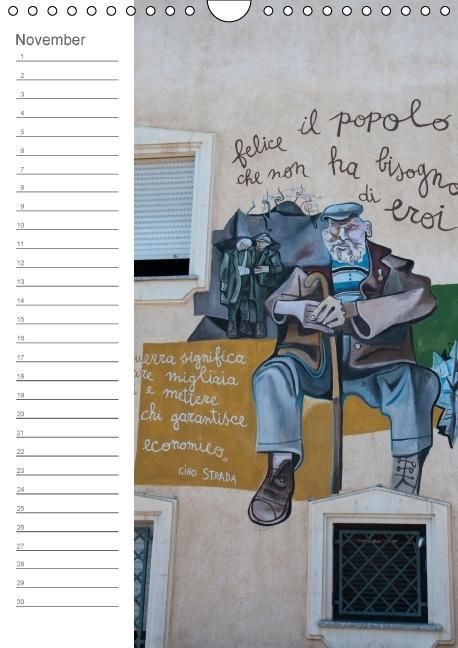 November
1
2
3
4
5
6
7
8
9
10
11
12
13
14
15
16
17
18
19
20
21
22
23
24
25
26
27
28
29
30
felice il popolo
che non ha bisogno
di eroi
uerra significa
re migliaia
e mettere
chi garantisce
economico,,
GINO STRADA